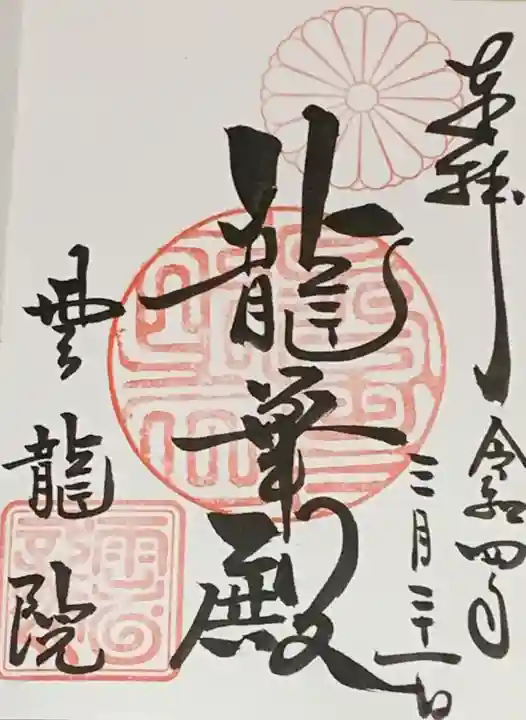 奉拝
令和四年
三月二十一日
龍華殿
雲龍院